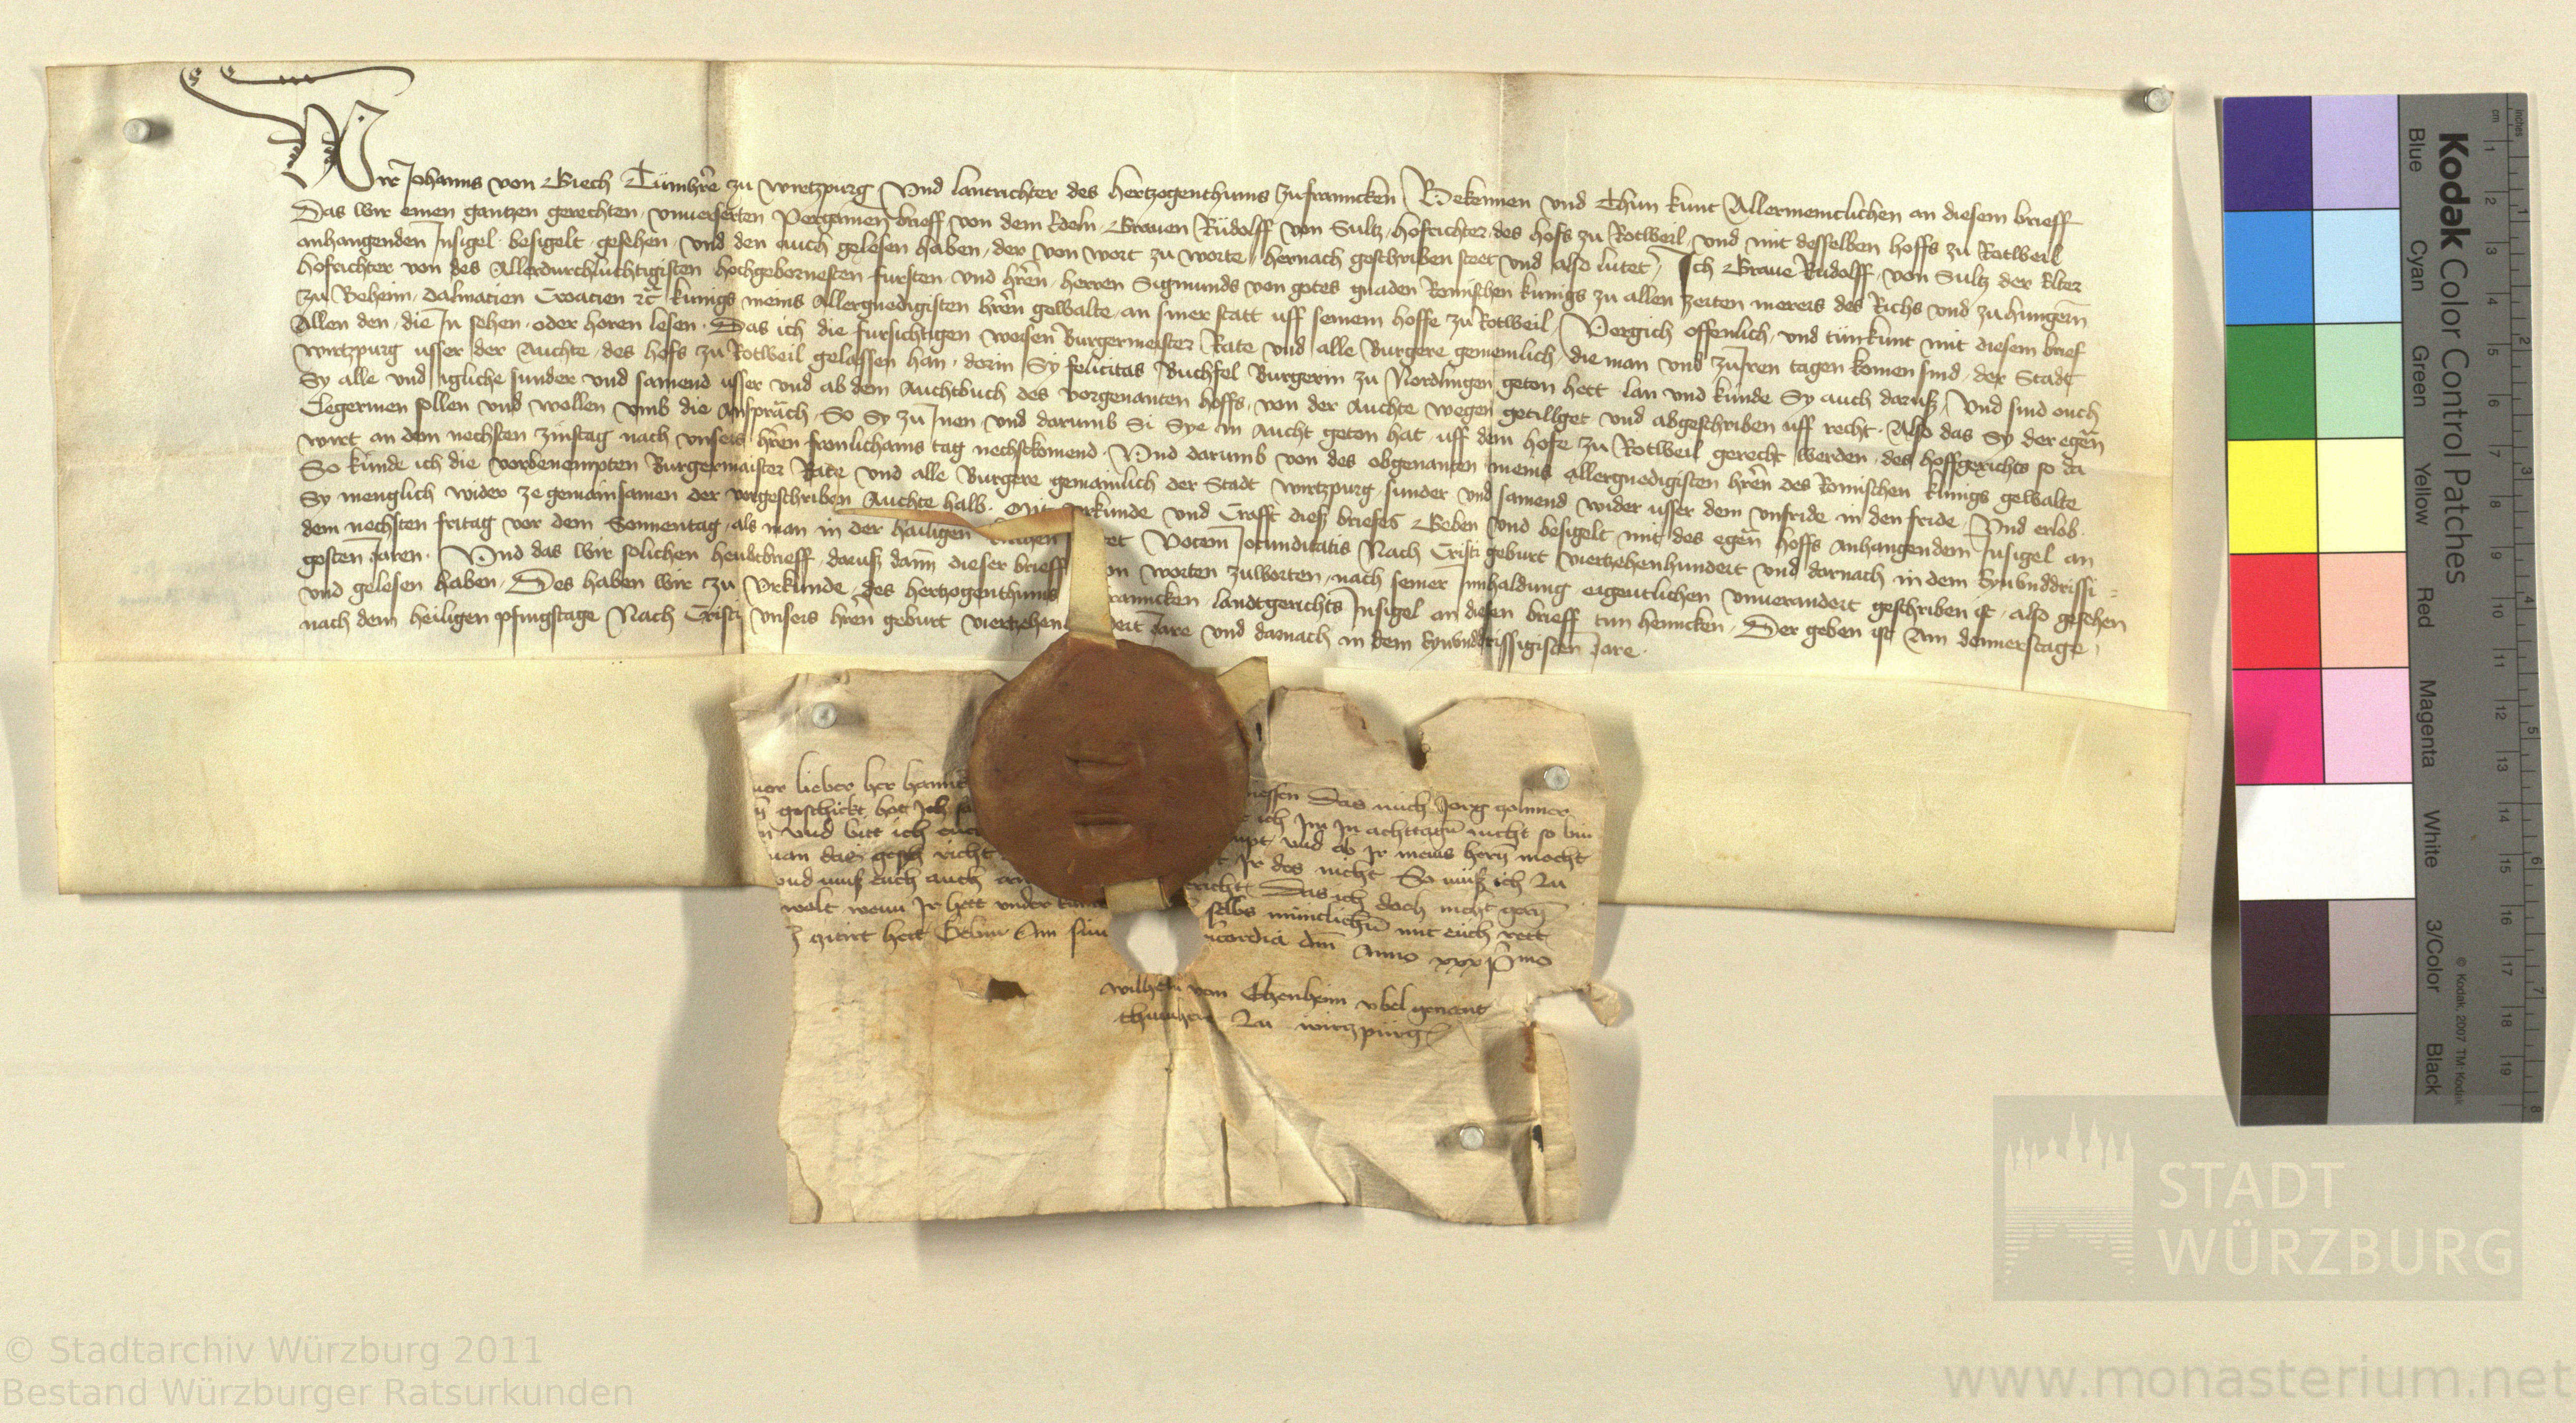 Wir Johanns von Giech Tumhr̄e zu wirtzpurg Und lantrichter des hertzogenthums zufranncken Bekennen und Thun kunt Allermeniclichen an diesem brieff
Das wir einen gantzen gerechten unuerserten Pergamen brieff von dem Edeln Grauen Rüdolff von Sultz hofrichter des hofs zu Rotweil und mit desselben hoffs zu Rotweil
anhangenden Insigel besigelt gesehen und den auch gelesen haben der von wort zu worte hernach geschriben steet und also lutet Ich Graue Rudolff von Sultz der Elter
hofrichter von des Allerdurchluchtigisten hochgebornesten fursten und hr̄en herren Sigmunds von gotes gnaden Romischen kunigs zu allen zeiten merers des Richs und zu hungern̄
zu Beheim dalmacien Croacien ꝛc̄ kunigs meins Allergnedigisten hr̄en gewalte an siner statt uff seinem hoffe zu Rotweil Vergich offenlich und tün kunt mit diesem brief
Allen den die In sehen oder horen lesen Das ich die fursichtigen weisen Burgermeister Rate und alle Burgere gemeinlich die man und zu Iren tagen komen sind der Stadt
wirtzpurg usser der Auchte des hofs zu Rotweil gelassen han dorin Sy felicitas Buchsel Burgerin zu Nordlingen geton hett lan und kunde Sy auch daruß Und sind ouch
Sy alle und igliche sunder und samend usser und ab dem Auchtbuch des vorgenanten hoffs von der Auchte wegen getillget und abgeschriben uff recht Also das Sy der egen̄
Clegerinen sollen und wollen umb die Ansprach So Sy zu Inen und darumb Si Sye in Aucht geton hat uff dem hofe zu Rotweil gerecht werden des hoffgerichts so da
wirt an dem nechsten zinstag nach unsers hr̄en fronlichams tag nechstkomend Und darumb von des obgenanten meins Allergnedigisten hr̄en des Romischen kunigs gewalte
So kunde ich die vorbenempten Burgermaister Rate und alle Burgere gemainlich der Stadt wirtzpurg sunder und samend wider usser dem unfride in den fride Und erlob
Sy menglich wider ze gemainsamen der vorgeschriben Auchte halb Mit urkunde und Crafft dieß briefes Geben und besigelt mit des egen̄ hoffs Anhangendem Insigel an
dem nechsten fritag vor dem Sonnentag als man in der hailigen Vocem Jocunditatis Nach Cristi geburt viertzehenhundert und darnach in dem Eynunddrissi
gosten Jaren Und das wir solichen heubtbrieff daruß dann̄ dieser brieff worten zuworten nach seiner Innhaldung eigentlichen unuerandert geschriben ist also gesehen
und gelesen haben Des haben wir zu Urkunde des hertzogenthums landtgerichts Insigel an diesen brieff tun hencken Der geben ist Am donnerstage
nach dem heiligen pfingstage Nach Cristi unsers hr̄en geburt viertzehen Jare und darnach in dem Eynunddrissigisten Jare
lieber her Das mich Jorg zolnner
geschickt hat ich Im In achttagn̄ nicht so bin
und bitt ich und ob Ir meins hern̄ mocht
das nicht Ir des nicht So muß ich zu
und muß euch auch Das ich doch nicht gern̄
wolt wenn Ir hett selbs muntlichn̄ mit euch rett
hett Gebin Am dm̄ Anno xxx pͥmo
wilhelm vom Ebenheim ubel genent
thumher zu wirzpurg
Kodak Color Control Patches
Blue Cyan Green Yellow Red Magenta White 3/Color Black
© Kodak, 2007 TM: Kodak
cm 1 2 3 4 5 6 7 8 9 10 11 12 13 14 15 16 17 18 19
inches 1 2 3 4 5 6 7 8
STADT
WÜRZBURG
© Stadtarchiv Würzburg 2011
Bestand Würzburger Ratsurkunden
www.monasterium.net